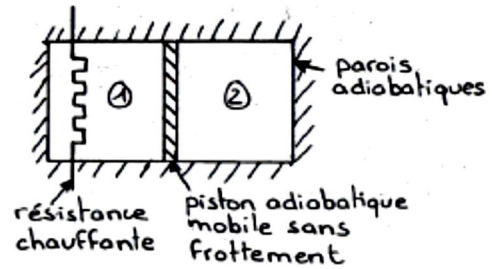 ①
②
parois
adiabatiques
résistance
chauffante
piston adiabatique
mobile sans
frottement